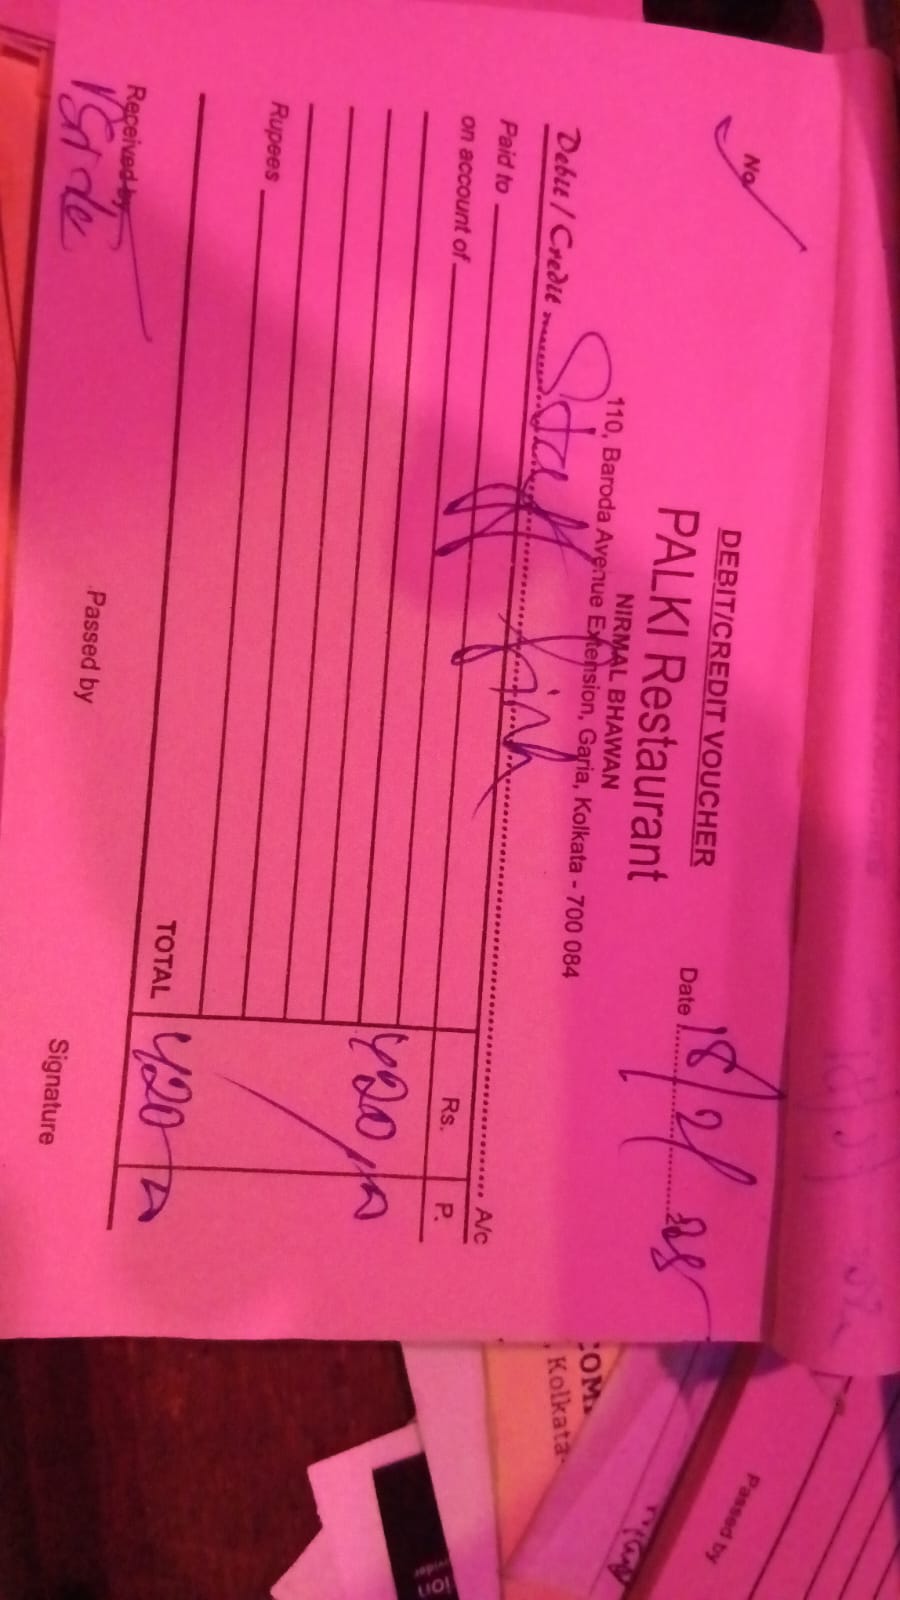 DEBIT/CREDIT VOUCHER
No.
PALKI Restaurant
NIRMAL BHAWAN
110, Baroda Avenue Extension, Garia, Kolkata - 700 084
Date 18/2/2025
Debit / Credit Staff Fish A/c
Paid to
on account of
Rs. P.
420/-
Rupees
TOTAL 420/-
Received by
Passed by
Signature
COM.
, Kolkata-
Passed by